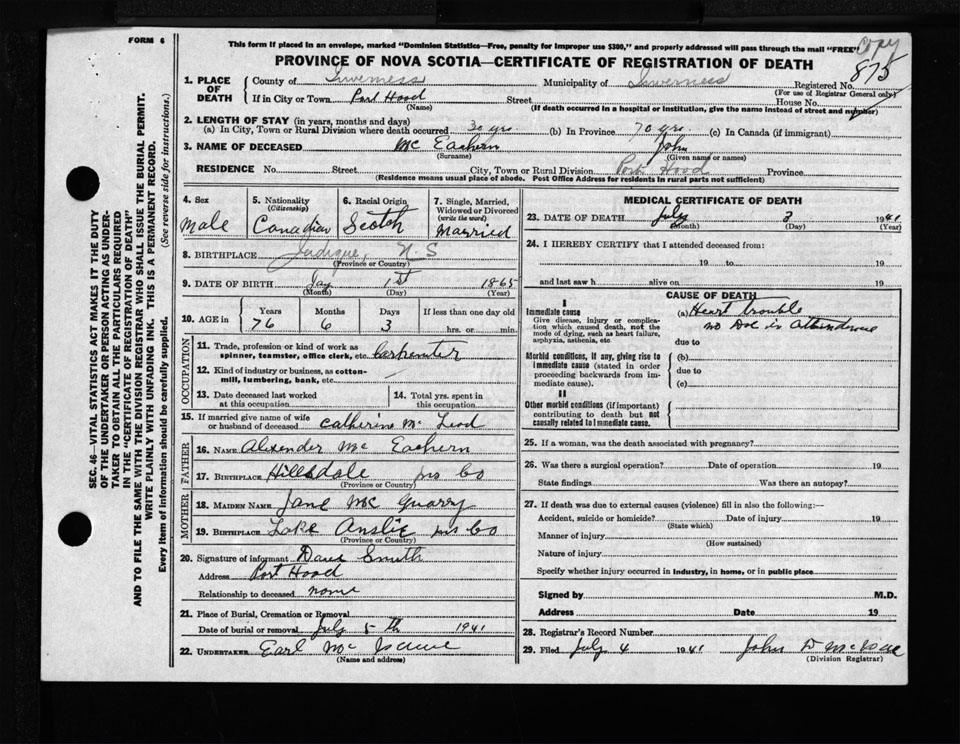 FORM 6
This form if placed in an envelope, marked "Dominion Statistics—Free, penalty for improper use $300," and properly addressed will pass through the mail "FREE"
Copy
PROVINCE OF NOVA SCOTIA—CERTIFICATE OF REGISTRATION OF DEATH
875
1. PLACE OF DEATH
County of Inverness Municipality of Inverness Registered No.
(For use of Registrar General only)
If in City or Town Port Hood Street House No.
(Name) (If death occurred in a hospital or institution, give the name instead of street and number)
2. LENGTH OF STAY (in years, months and days)
(a) In City, Town or Rural Division where death occurred 30 yrs. (b) In Province 70 yrs. (c) In Canada (if immigrant)
3. NAME OF DECEASED Mc Eachern John
(Surname) (Given name or names)
RESIDENCE No. Street City, Town or Rural Division Port Hood Province
(Residence means usual place of abode. Post Office Address for residents in rural parts not sufficient)
4. Sex
Male
5. Nationality
(Citizenship)
Canadian
6. Racial Origin
Scotch
7. Single, Married, Widowed or Divorced
(write the word)
Married
8. BIRTHPLACE Judique, N S
(Province or Country)
9. DATE OF BIRTH Jay 1st 1865
(Month) (Day) (Year)
10. AGE in
Years Months Days If less than one day old
76 6 3 hrs. or min.
OCCUPATION
11. Trade, profession or kind of work as
spinner, teamster, office clerk, etc. Carpenter
12. Kind of industry or business, as cotton-
mill, lumbering, bank, etc.
13. Date deceased last worked
at this occupation
14. Total yrs. spent in
this occupation
15. If married give name of wife
or husband of deceased Catherine Mc Leod
FATHER
16. NAME Alexender Mc Eachern
17. BIRTHPLACE Hillsdale Ins Co
(Province or Country)
MOTHER
18. MAIDEN NAME Jane Mc Quarry
19. BIRTHPLACE Lake Anslie Ins Co
(Province or Country)
20. Signature of informant Dave Smith
Address Port Hood
Relationship to deceased none
21. Place of Burial, Cremation or Removal
Date of burial or removal July 5th 1941
22. UNDERTAKER Earl Mc Isaac
(Name and address)
MEDICAL CERTIFICATE OF DEATH
23. DATE OF DEATH July 3 1941
(Month) (Day) (Year)
24. I HEREBY CERTIFY that I attended deceased from:
19 to 19
and last saw h alive on 19
CAUSE OF DEATH
I
Immediate cause
Give disease, injury or complication which caused death, not the mode of dying, such as heart failure, asphyxia, asthenia, etc.
(a) Heart trouble
no Doc in Attendence
due to
Morbid conditions, if any, giving rise to immediate cause (stated in order proceeding backwards from immediate cause).
(b)
due to
(c)
II
Other morbid conditions (if important) contributing to death but not causally related to immediate cause.
25. If a woman, was the death associated with pregnancy?
26. Was there a surgical operation? Date of operation 19
State findings Was there an autopsy?
27. If death was due to external causes (violence) fill in also the following:—
Accident, suicide or homicide? Date of injury 19
(State which)
Manner of injury
(How sustained)
Nature of injury
Specify whether injury occurred in industry, in home, or in public place
Signed by M.D.
Address Date 19
28. Registrar's Record Number
29. Filed July 4 1941 John D McIsaac
(Division Registrar)
SEC. 46—VITAL STATISTICS ACT MAKES IT THE DUTY
OF THE UNDERTAKER OR PERSON ACTING AS UNDER-
TAKER TO OBTAIN ALL THE PARTICULARS REQUIRED
IN THE "CERTIFICATE OF REGISTRATION OF DEATH"
AND TO FILE THE SAME WITH THE DIVISION REGISTRAR WHO SHALL ISSUE THE BURIAL PERMIT.
WRITE PLAINLY WITH UNFADING INK. THIS IS A PERMANENT RECORD.
Every item of information should be carefully supplied. (See reverse side for instructions.)